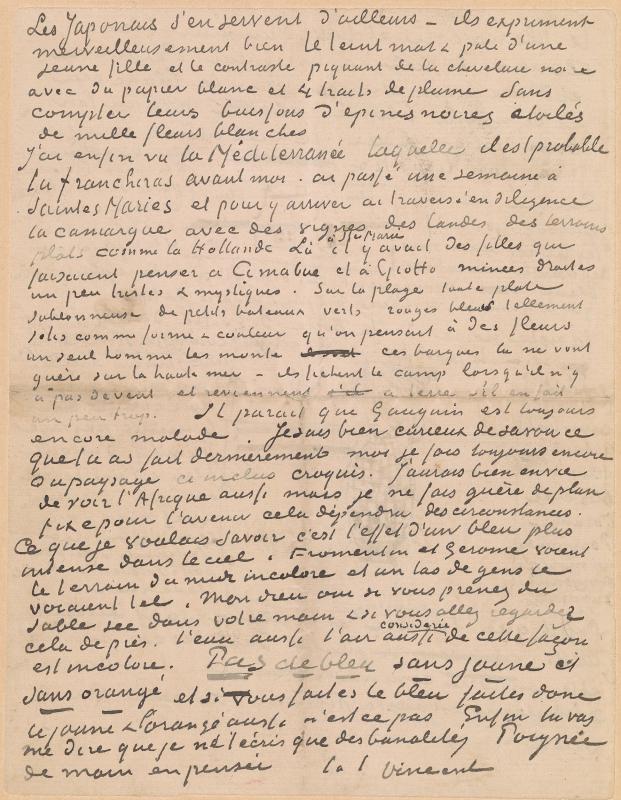 Les Japonais s'en servent d'ailleurs – ils expriment
merveilleusement bien le teint mat & pâle d'une
jeune fille et le contraste piquant de la chevelure noire
avec du papier blanc et 4 traits de plume Sans
compter leurs buissons d'épines noires étoilés
de mille fleurs blanches
J'ai enfin vu la Méditerranée laquelle il est probable
tu franchiras avant moi. ai passé une semaine à
Saintes Maries et pour y arriver ai traversé en diligence
la camargue avec des vignes des landes des terrains
plats comme la Hollande Là à Stes Maries il y avait des filles qui
faisaient penser à Cimabue et à Giotto minces droites
un peu tristes & mystiques. Sur la plage toute plate
sablonneuse de petits bateaux verts rouges bleus tellement
jolis comme forme & couleur qu'on pensait à des fleurs
un seul homme les monte ces barques là ne vont
guère sur la haute mer – ils fichent le camp lorsqu'il n'y
a pas de vent et reviennent à terre s'il en fait
un peu trop. Il parait que Gauguin est toujours
encore malade. Je suis bien curieux de savoir ce
que tu as fait dernièrement moi je fais toujours encore
du paysage ci inclus croquis. J'aurais bien envie
de voir l'Afrique aussi mais je ne fais guère de plan
fixe pour l'avenir cela dépendra des circonstances.
Ce que je voulais savoir c'est l'effet d'un bleu plus
intense dans le ciel. Fromentin et Gerome voient
le terrain du midi incolore et un tas de gens le
voyaient tel. Mon dieu oui si vous prenez du
sable sec dans votre main & si vous allez regardez
cela de près. l'eau aussi l'air aussi considérés de cette façon
est incolore. Pas de bleu sans jaune et
sans orangé et si vous faites le bleu faites donc
le jaune & l'orangé aussi n'est ce pas Enfin tu vas
me dire que je ne t'écris que des banalités Poignée
de main en pensée t. à t. Vincent